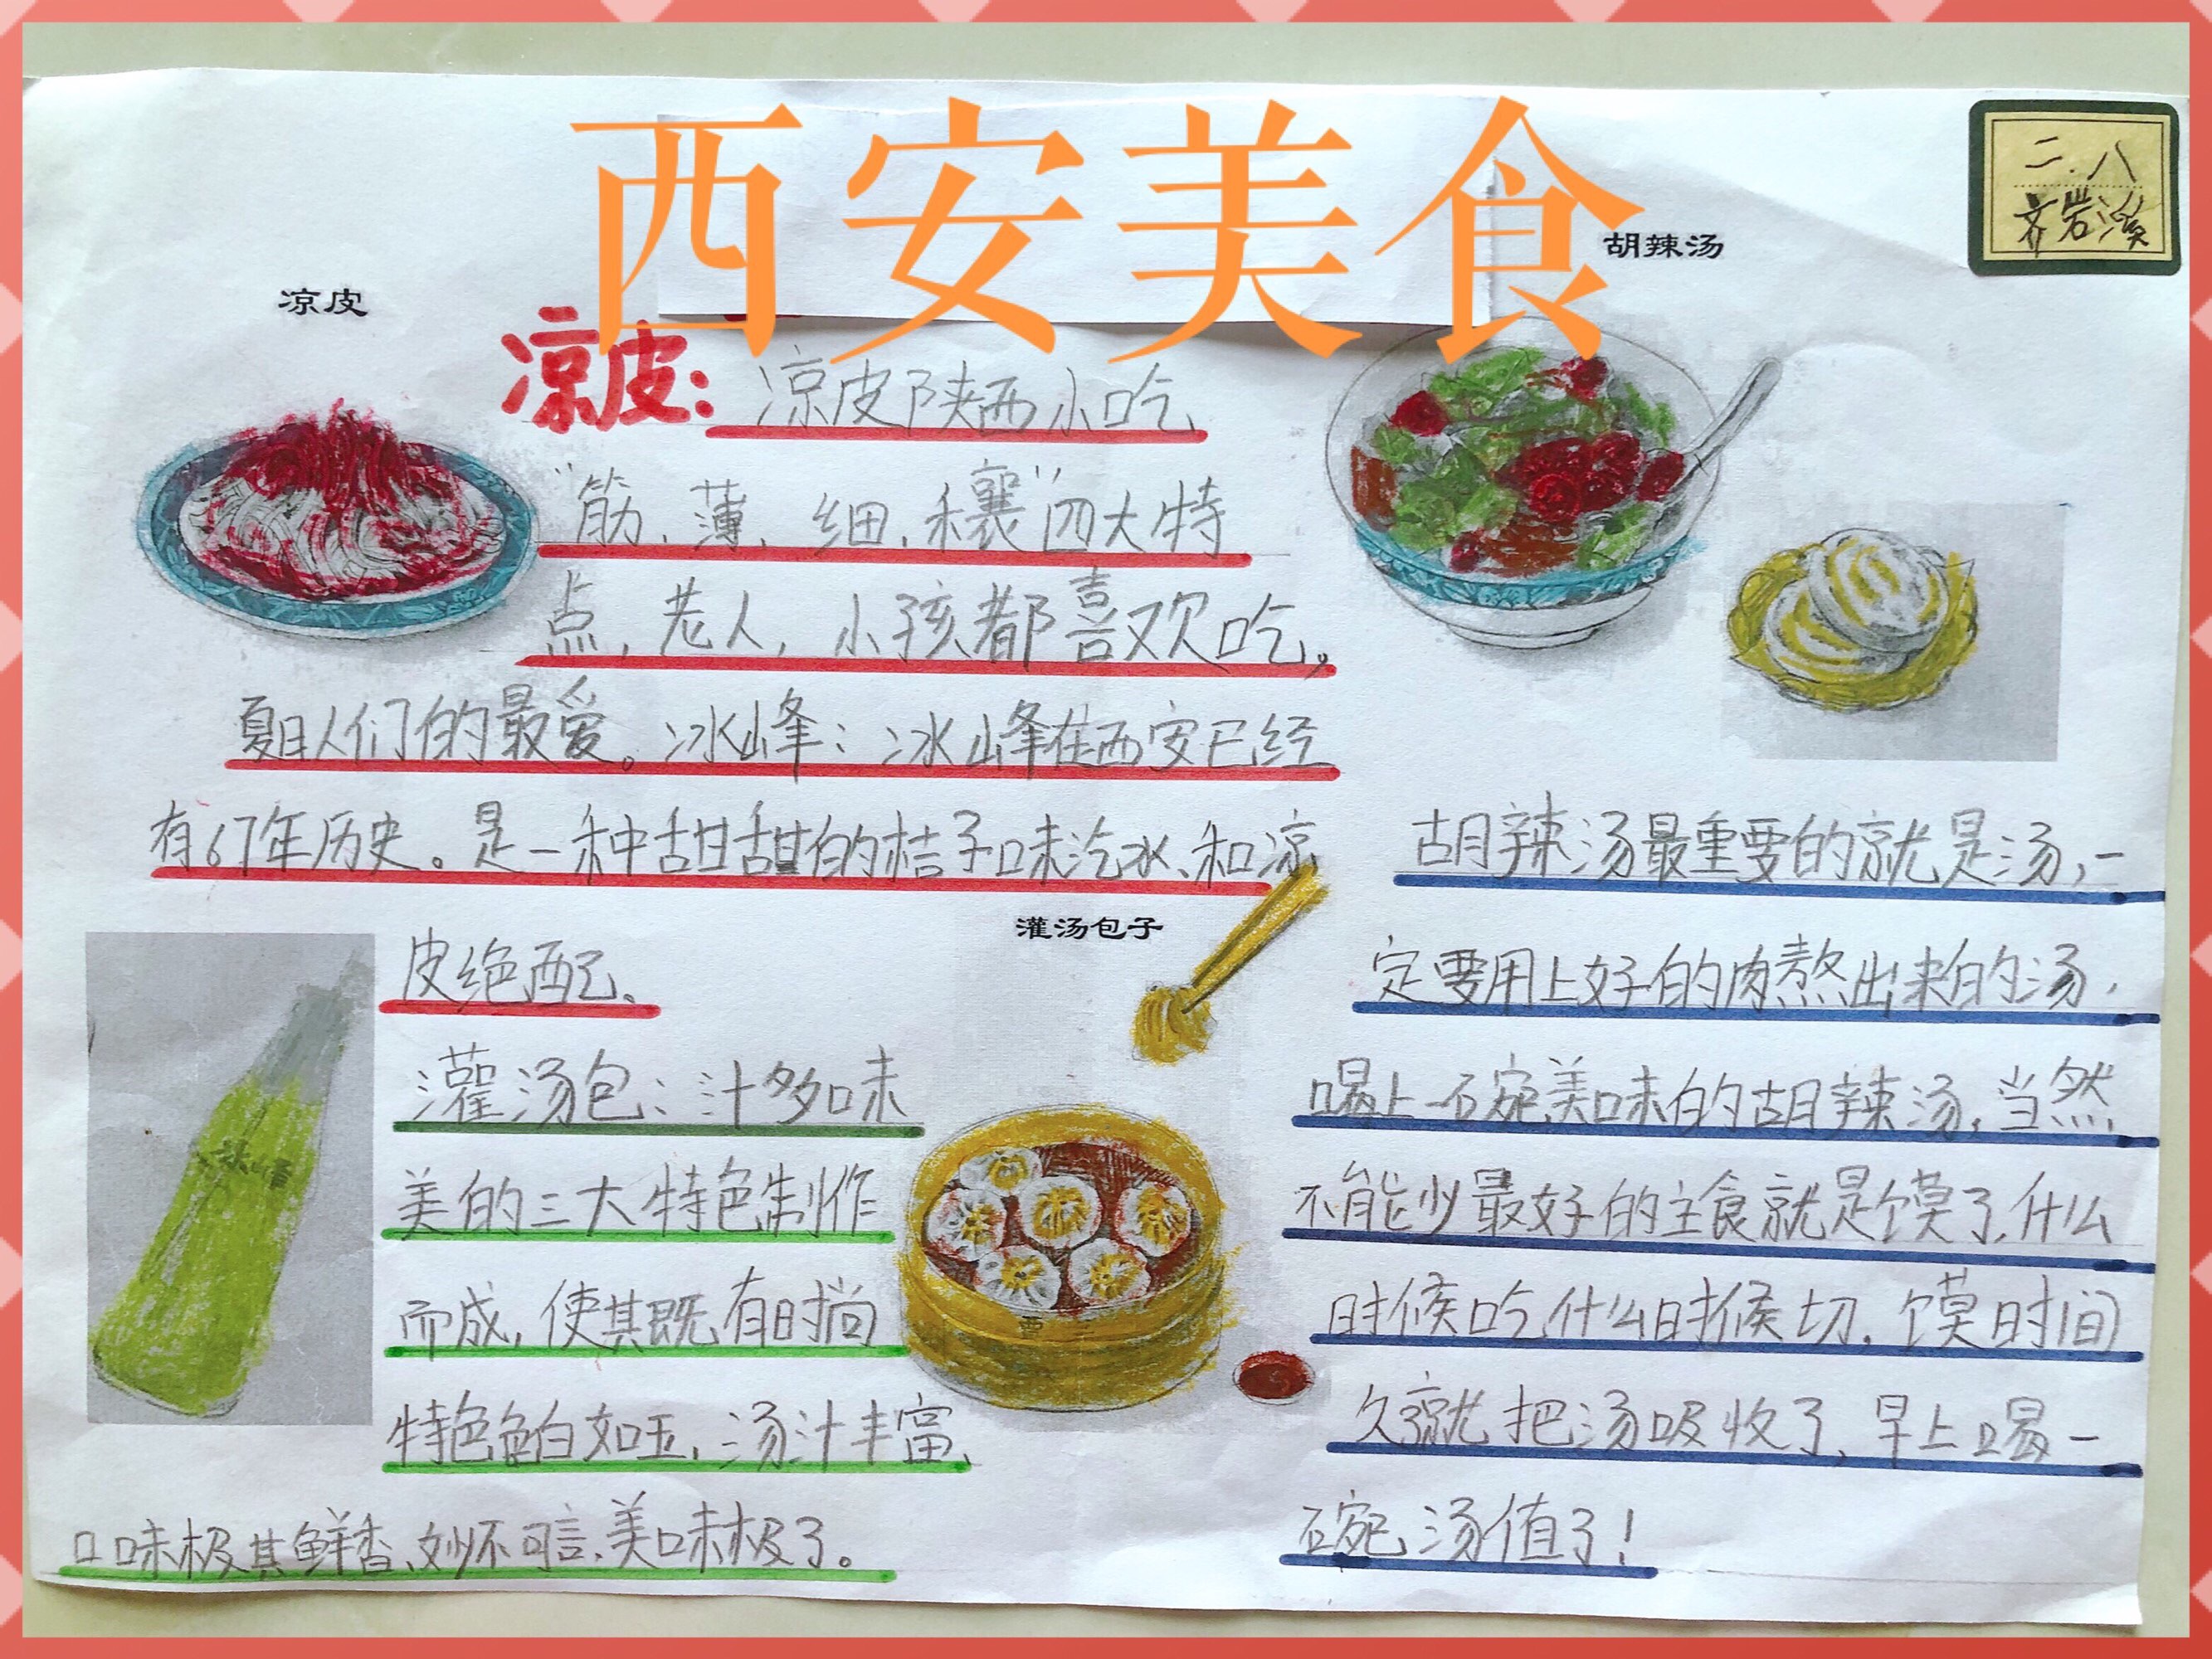 西安美食
二.八
凉皮
胡辣汤
凉皮：凉皮陕西小吃
“筋、薄、细、穰”四大特
点，老人，小孩都喜欢吃。
夏日人们的最爱。冰峰：冰峰在西安已经
有67年历史。是一种甜甜的桔子味汽水、和凉
皮绝配、
冰峰
灌汤包子
灌汤包：汁多味
美的三大特色制作
而成，使其既有时尚
特色色白如玉，汤汁丰富、
口味极其鲜香、妙不可言、美味极了。
胡辣汤最重要的就是汤，一
定要用上好的肉熬出来的汤，
喝上一碗美味的胡辣汤，当然，
不能少最好的主食就是馍了，什么
时候吃，什么时候切，馍时间
久就把汤吸收了，早上喝一
碗，汤值了！